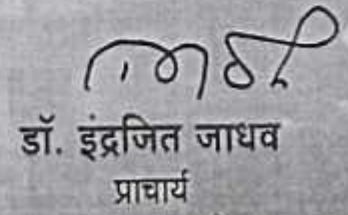 डॉ. इंद्रजित जाधव
प्राचार्य